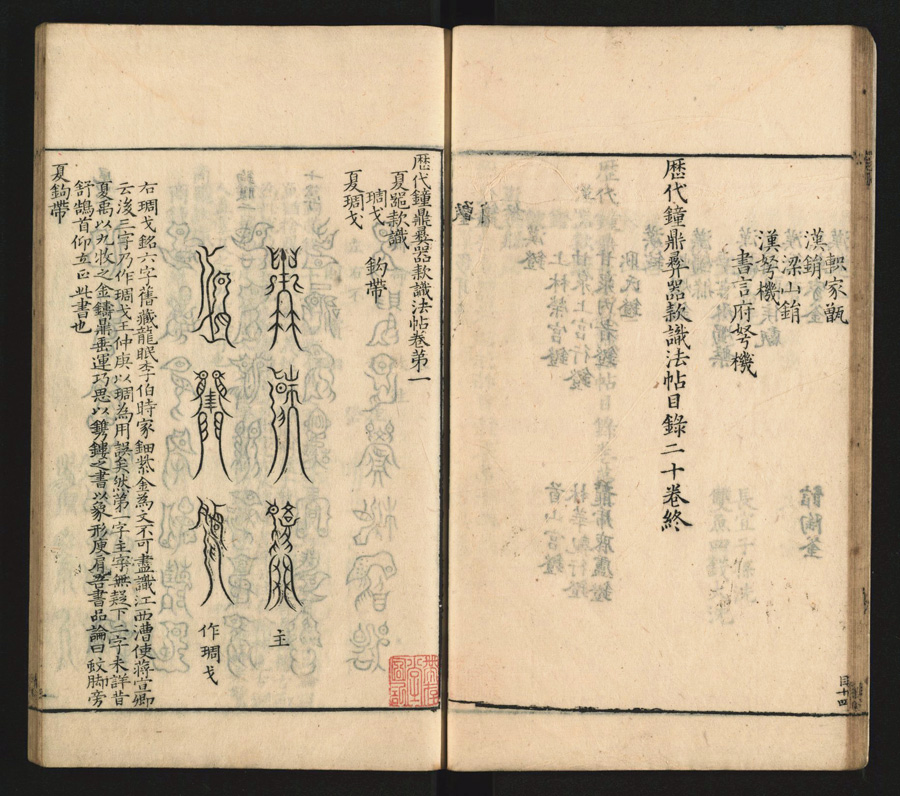 軹家甑
漢鋗
梁山鋗
漢弩機
書言府弩機
歷代鐘鼎彝器款識法帖目錄二十卷終
歷代鐘鼎彝器款識法帖卷第一
夏器款識
琱戈 鉤帶
夏琱戈
主
作琱戈
右琱戈銘六字舊藏龍眠李伯時家鈿紫金為文不可盡識江西漕使蔣宣卿
云後三字乃作琱戈王仲庚以琱為用誤矣然第一字主字無疑下二字未詳昔
夏禹以九牧之金鑄鼎垂運巧思以鐫鏤之書以象形庾肩吾書品論曰蚊脚旁
舒鵠首仰立正此書也
夏鉤帶